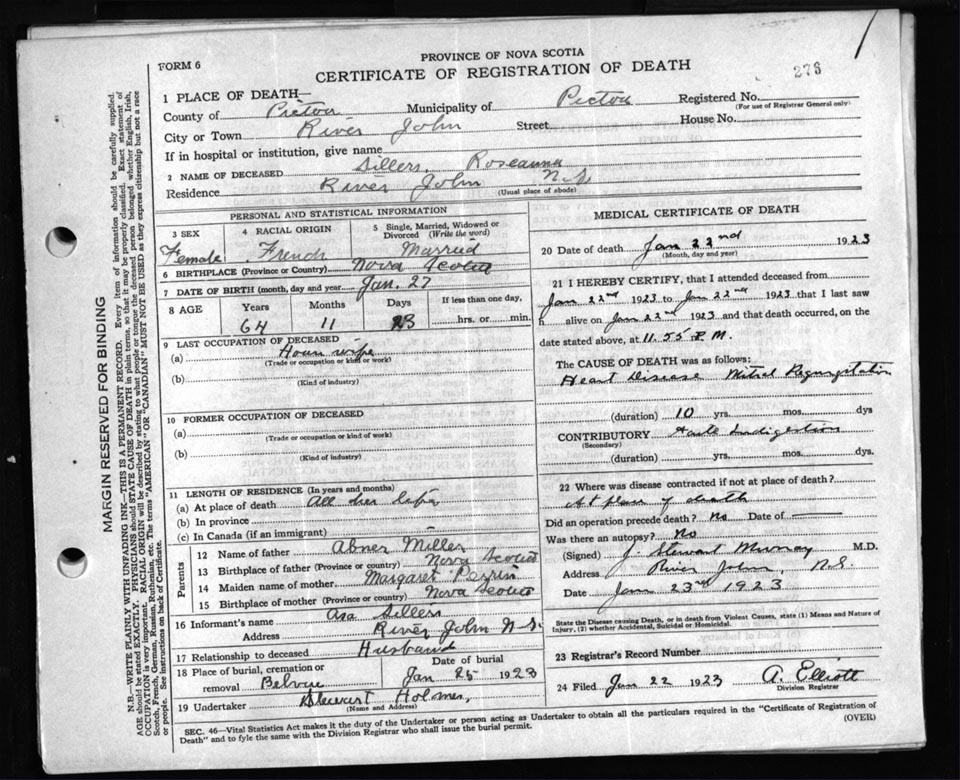 PROVINCE OF NOVA SCOTIA
FORM 6
CERTIFICATE OF REGISTRATION OF DEATH
276
1 PLACE OF DEATH—
County of Pictou Municipality of Pictou Registered No.
(For use of Registrar General only)
City or Town River John Street House No.
If in hospital or institution, give name
2 NAME OF DECEASED Sillers, Roseanna
Residence River John N.S.
(Usual place of abode)
PERSONAL AND STATISTICAL INFORMATION
3 SEX 4 RACIAL ORIGIN 5 Single, Married, Widowed or Divorced (Write the word)
Female French Married
6 BIRTHPLACE (Province or Country) Nova Scotia
7 DATE OF BIRTH (month, day and year) Jan. 27
8 AGE Years Months Days If less than one day,
64 11 23 hrs. or min.
9 LAST OCCUPATION OF DECEASED
(a) House wife
(Trade or occupation or kind or work)
(b)
(Kind of industry)
10 FORMER OCCUPATION OF DECEASED
(a)
(Trade or occupation or kind of work)
(b)
(Kind of industry)
11 LENGTH OF RESIDENCE (In years and months)
(a) At place of death All her life
(b) In province
(c) In Canada (if an immigrant)
Parents
12 Name of father Abner Miller
13 Birthplace of father (Province or country) Nova Scotia
14 Maiden name of mother Margaret Perrin
15 Birthplace of mother (Province or country) Nova Scotia
16 Informant's name Asa Sillers
Address River John N.S.
17 Relationship to deceased Husband
18 Place of burial, cremation or removal Belvue Date of burial Jan 25 1923
19 Undertaker Stewart Holmes,
(Name and Address)
MEDICAL CERTIFICATE OF DEATH
20 Date of death Jan 22nd 1923
(Month, day and year)
21 I HEREBY CERTIFY, that I attended deceased from
Jan 22nd 1923 to Jan 22nd 1923 that I last saw
h alive on Jan 22nd 1923 and that death occurred, on the
date stated above, at 11.55 P.M.
The CAUSE OF DEATH was as follows:
Heart Disease Mitral Regurgitation
(duration) 10 yrs. mos. dys
CONTRIBUTORY Acute Indigestion
(Secondary)
(duration) yrs. mos. dys.
22 Where was disease contracted if not at place of death?
At place of death
Did an operation precede death? No Date of —
Was there an autopsy? No
(Signed) J. Stewart Murray M.D.
Address River John, N.S.
Date Jan 23rd 1923
State the Disease causing Death, or in death from Violent Causes, state (1) Means and Nature of
Injury, (2) whether Accidental, Suicidal or Homicidal.
23 Registrar's Record Number
24 Filed Jan 22 1923 A. Elliott
Division Registrar
SEC. 46—Vital Statistics Act makes it the duty of the Undertaker or person acting as Undertaker to obtain all the particulars required in the "Certificate of Registration of
Death" and to fyle the same with the Division Registrar who shall issue the burial permit. (OVER)
MARGIN RESERVED FOR BINDING
N.B.—WRITE PLAINLY WITH UNFADING INK—THIS IS A PERMANENT RECORD. Every item of information should be carefully supplied.
AGE should be stated EXACTLY. PHYSICIANS should STATE CAUSE OF DEATH in plain terms, so that it may be properly classified. Exact statement of
OCCUPATION is very important. RACIAL ORIGIN will be described by stating to what people or tongue the deceased person belonged whether English, Irish,
Scotch, French, German, Russian, Ruthenian, etc. The terms "AMERICAN" OR "CANADIAN" MUST NOT BE USED as they express citizenship but not a race
or people. See instructions on back of Certificate.